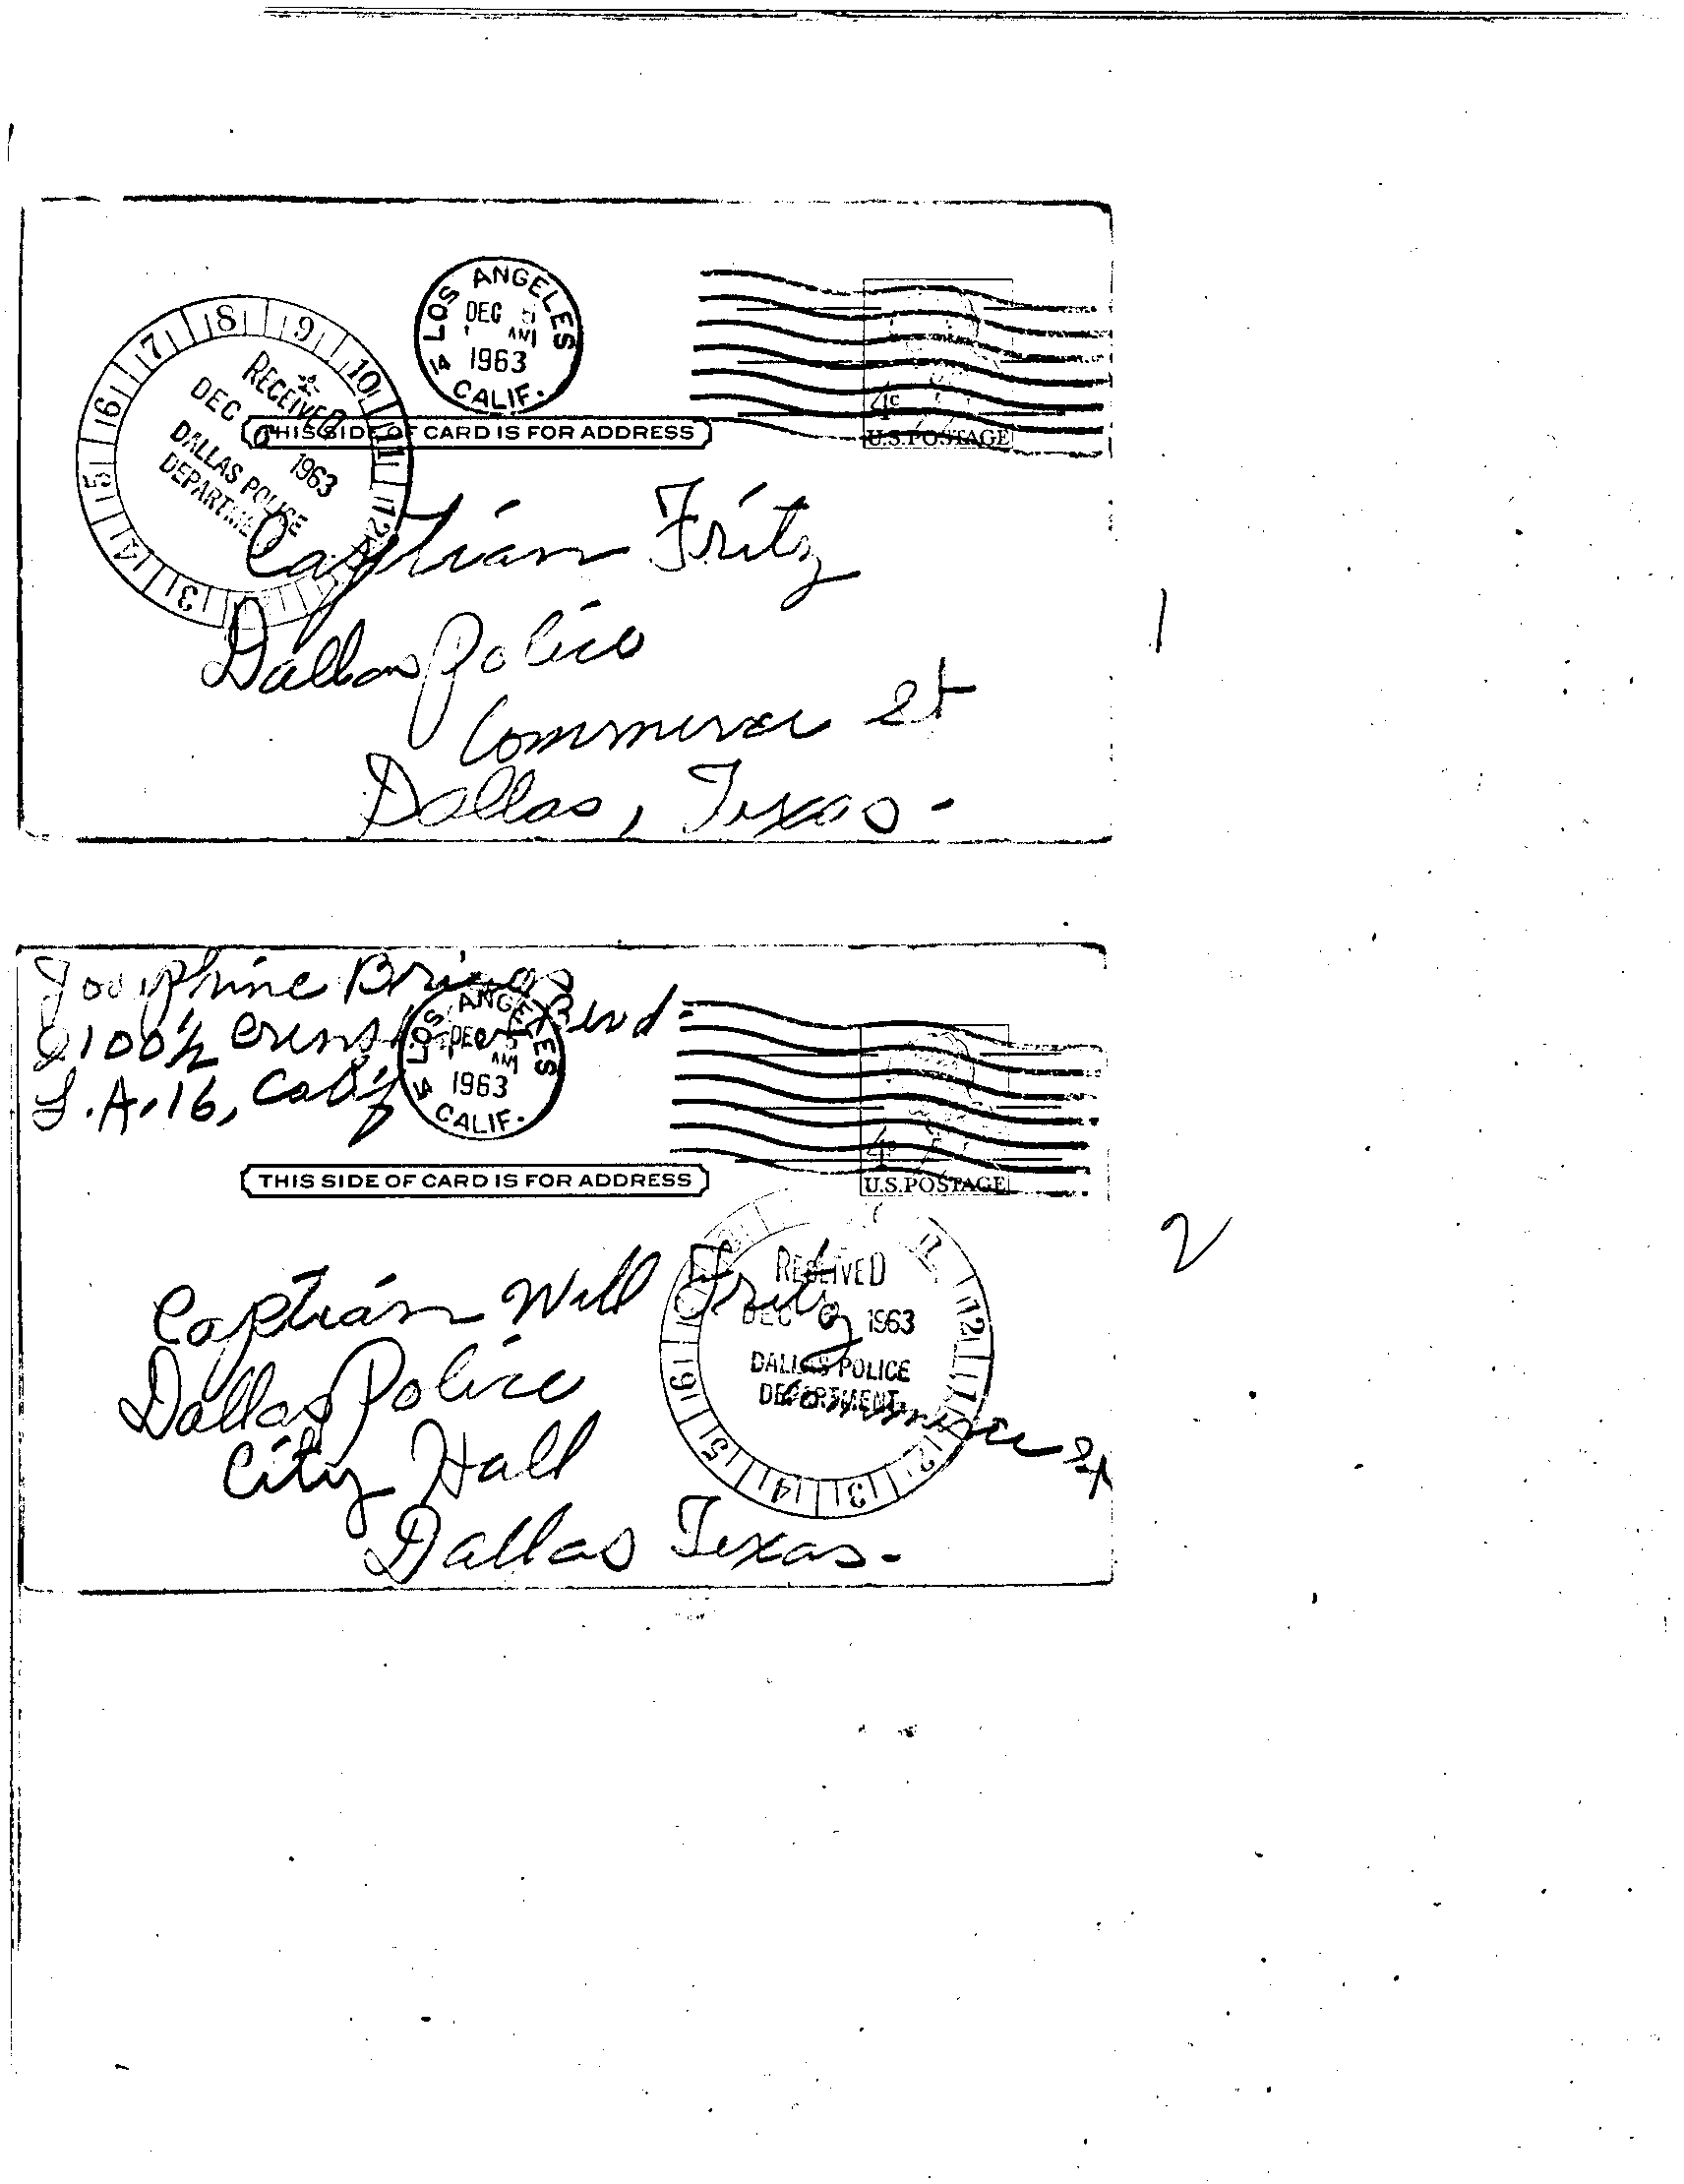 LOS ANGELES
DEC 5
AM
1963
14 CALIF.
RECEIVED
DEC 6 1963
DALLAS POLICE
DEPARTMENT
THIS SIDE OF CARD IS FOR ADDRESS
4¢
U.S.POSTAGE
Captian Fritz
Dallas Police
Commerce St
Dallas, Texas.
1
Josephine Briggs
2100½ Crenshaw Blvd.
L.A. 16, Calif
LOS ANGELES
DEC 5
AM
1963
14 CALIF.
THIS SIDE OF CARD IS FOR ADDRESS
4¢
U.S.POSTAGE
2
RECEIVED
DEC 6 1963
DALLAS POLICE
DEPARTMENT
Captian Will Fritz
Dallas Police
Commerce St
City Hall
Dallas Texas.